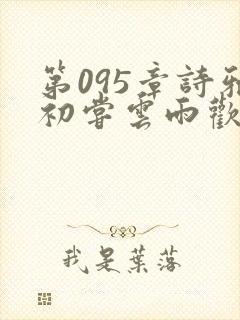 第095章詩雅
初嘗雲雨歡
我是葉落